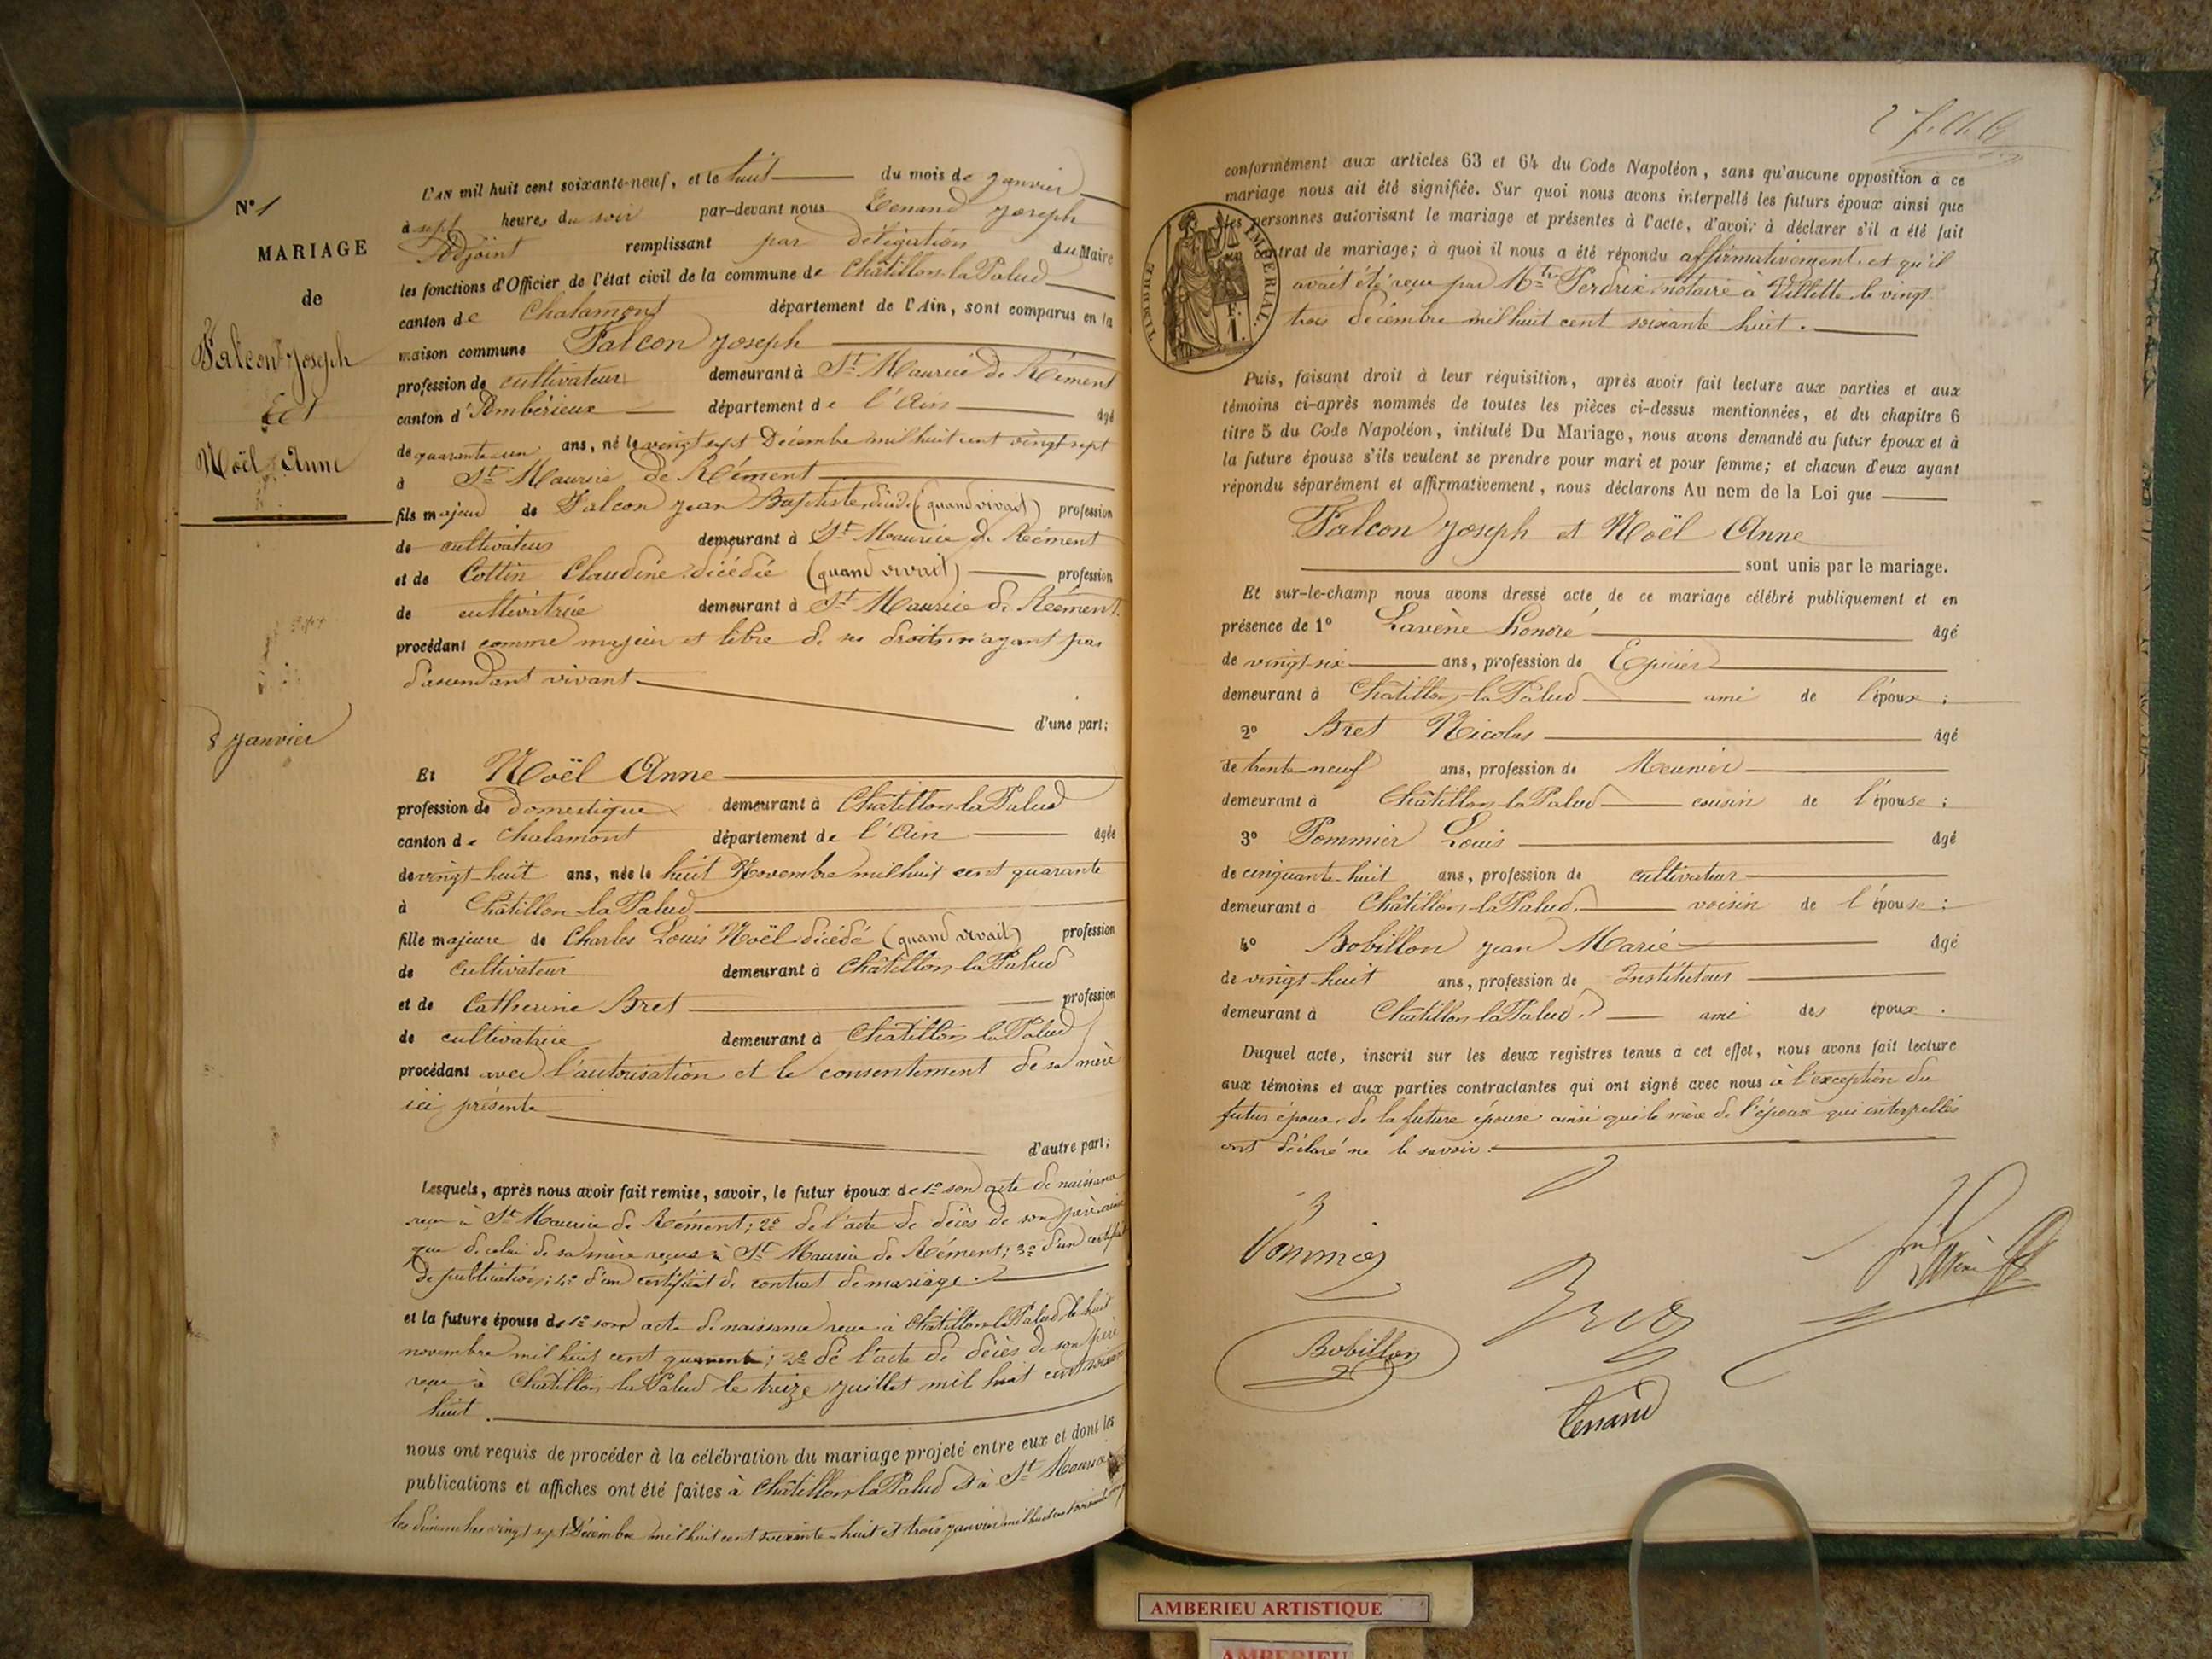 N° 1
MARIAGE
de
Falcon Joseph
Et
Noël Anne
8 Janvier
L'AN mil huit cent soixante-neuf, et le huit du mois de Janvier
à sept heures du soir par-devant nous Tenand Joseph
Adjoint remplissant par délégation du Maire
les fonctions d'Officier de l'état civil de la commune de Châtillon-la-Palud
canton de Chalamont département de l'Ain, sont comparus en la
maison commune Falcon Joseph
profession de cultivateur demeurant à St Maurice de Rément
canton d'Ambérieux département de l'Ain âgé
de quarante-un ans, né le vingt sept Décembre mil huit cent vingt sept
à St Maurice de Rément
fils majeur de Falcon Jean Baptiste décédé (quand vivait) profession
de cultivateur demeurant à St Maurice de Rément
et de Cottin Claudine décédée (quand vivait) profession
de cultivatrice demeurant à St Maurice de Rément.
procédant comme majeur et libre de ses droits n'ayant pas
d'ascendant vivant
d'une part;
Et Noël Anne
profession de domestique demeurant à Châtillon-la-Palud
canton de Chalamont département de l'Ain âgée
de vingt-huit ans, née le huit Novembre mil huit cent quarante
à Châtillon-la-Palud
fille majeure de Charles Louis Noël décédé (quand vivait) profession
de cultivateur demeurant à Châtillon-la-Palud
et de Catherine Bret profession
de cultivatrice demeurant à Châtillon-la-Palud
procédant avec l'autorisation et le consentement de sa mère
ici présente
d'autre part;
Lesquels, après nous avoir fait remise, savoir, le futur époux de 1° son acte de naissance
reçu à St Maurice de Rément; 2° de l'acte de décès de son père ainsi
que de celui de sa mère reçus à St Maurice de Rément; 3° d'un certificat
de publication; 4° d'un certificat de contrat de mariage.
et la future épouse de 1° son acte de naissance reçu à Châtillon-la-Palud le huit
novembre mil huit cent quarante; 2° de l'acte de décès de son père
reçu à Châtillon-la-Palud le treize Juillet mil huit cent soixante
huit.
nous ont requis de procéder à la célébration du mariage projeté entre eux et dont les
publications et affiches ont été faites à Châtillon-la-Palud et à St Maurice
les dimanches vingt sept Décembre mil huit cent soixante-huit et trois Janvier mil huit cent soixante neuf
conformément aux articles 63 et 64 du Code Napoléon, sans qu'aucune opposition à ce
mariage nous ait été signifiée. Sur quoi nous avons interpellé les futurs époux ainsi que
les personnes autorisant le mariage et présentes à l'acte, d'avoir à déclarer s'il a été fait
un contrat de mariage; à quoi il nous a été répondu affirmativement, et qu'il
avait été reçu par Mtre Perdrix notaire à Villette le vingt
trois décembre mil huit cent soixante huit.
TIMBRE IMPÉRIAL.
1 F.
Puis, faisant droit à leur réquisition, après avoir fait lecture aux parties et aux
témoins ci-après nommés de toutes les pièces ci-dessus mentionnées, et du chapitre 6
titre 5 du Code Napoléon, intitulé Du Mariage, nous avons demandé au futur époux et à
la future épouse s'ils veulent se prendre pour mari et pour femme; et chacun d'eux ayant
répondu séparément et affirmativement, nous déclarons Au nom de la Loi que
Falcon Joseph et Noël Anne
sont unis par le mariage.
Et sur-le-champ nous avons dressé acte de ce mariage célébré publiquement et en
présence de 1° Lavène Honoré âgé
de vingt-six ans, profession de Epicier
demeurant à Châtillon-la-Palud ami de l'époux;
2° Bret Nicolas âgé
de trente-neuf ans, profession de Meunier
demeurant à Châtillon-la-Palud cousin de l'épouse;
3° Pommier Louis âgé
de cinquante-huit ans, profession de cultivateur
demeurant à Châtillon-la-Palud. voisin de l'épouse;
4° Bobillon Jean Marie âgé
de vingt-huit ans, profession de Instituteur
demeurant à Châtillon-la-Palud. ami des époux.
Duquel acte, inscrit sur les deux registres tenus à cet effet, nous avons fait lecture
aux témoins et aux parties contractantes qui ont signé avec nous à l'exception du
futur époux, de la future épouse ainsi que la mère de l'épouse qui interpellés
ont déclaré ne le savoir.
Pommier
Bret
Bobillon
Tenand
AMBERIEU ARTISTIQUE
AMBERIEU